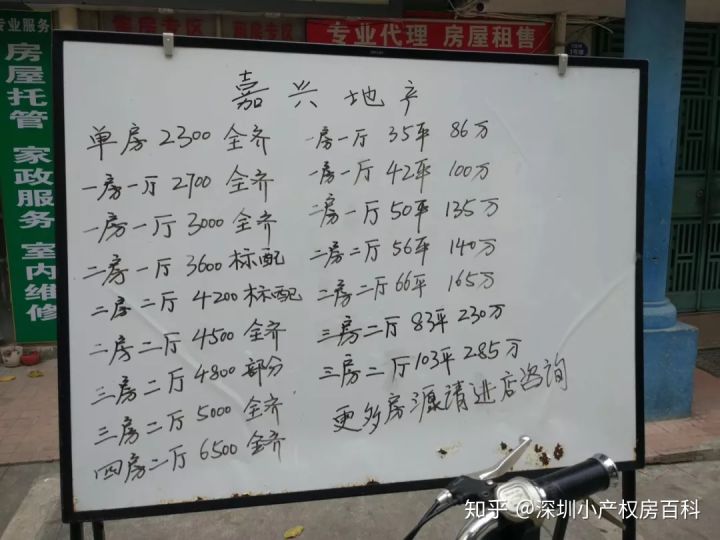 专业代理 房屋租售
专业服务
房屋托管 家政服务 室内维修
嘉兴地产
单房 2300 全齐
一房一厅 2700 全齐
一房一厅 3000 全齐
二房一厅 3600 标配
二房二厅 4200 标配
二房二厅 4500 全齐
三房二厅 4800 部分
三房二厅 5000 全齐
四房二厅 6500 全齐
一房一厅 35平 86万
一房一厅 42平 100万
二房一厅 50平 135万
二房二厅 56平 140万
二房二厅 66平 165万
三房二厅 83平 230万
三房二厅 103平 285万
更多房源请进店咨询
知乎 @深圳小产权房百科